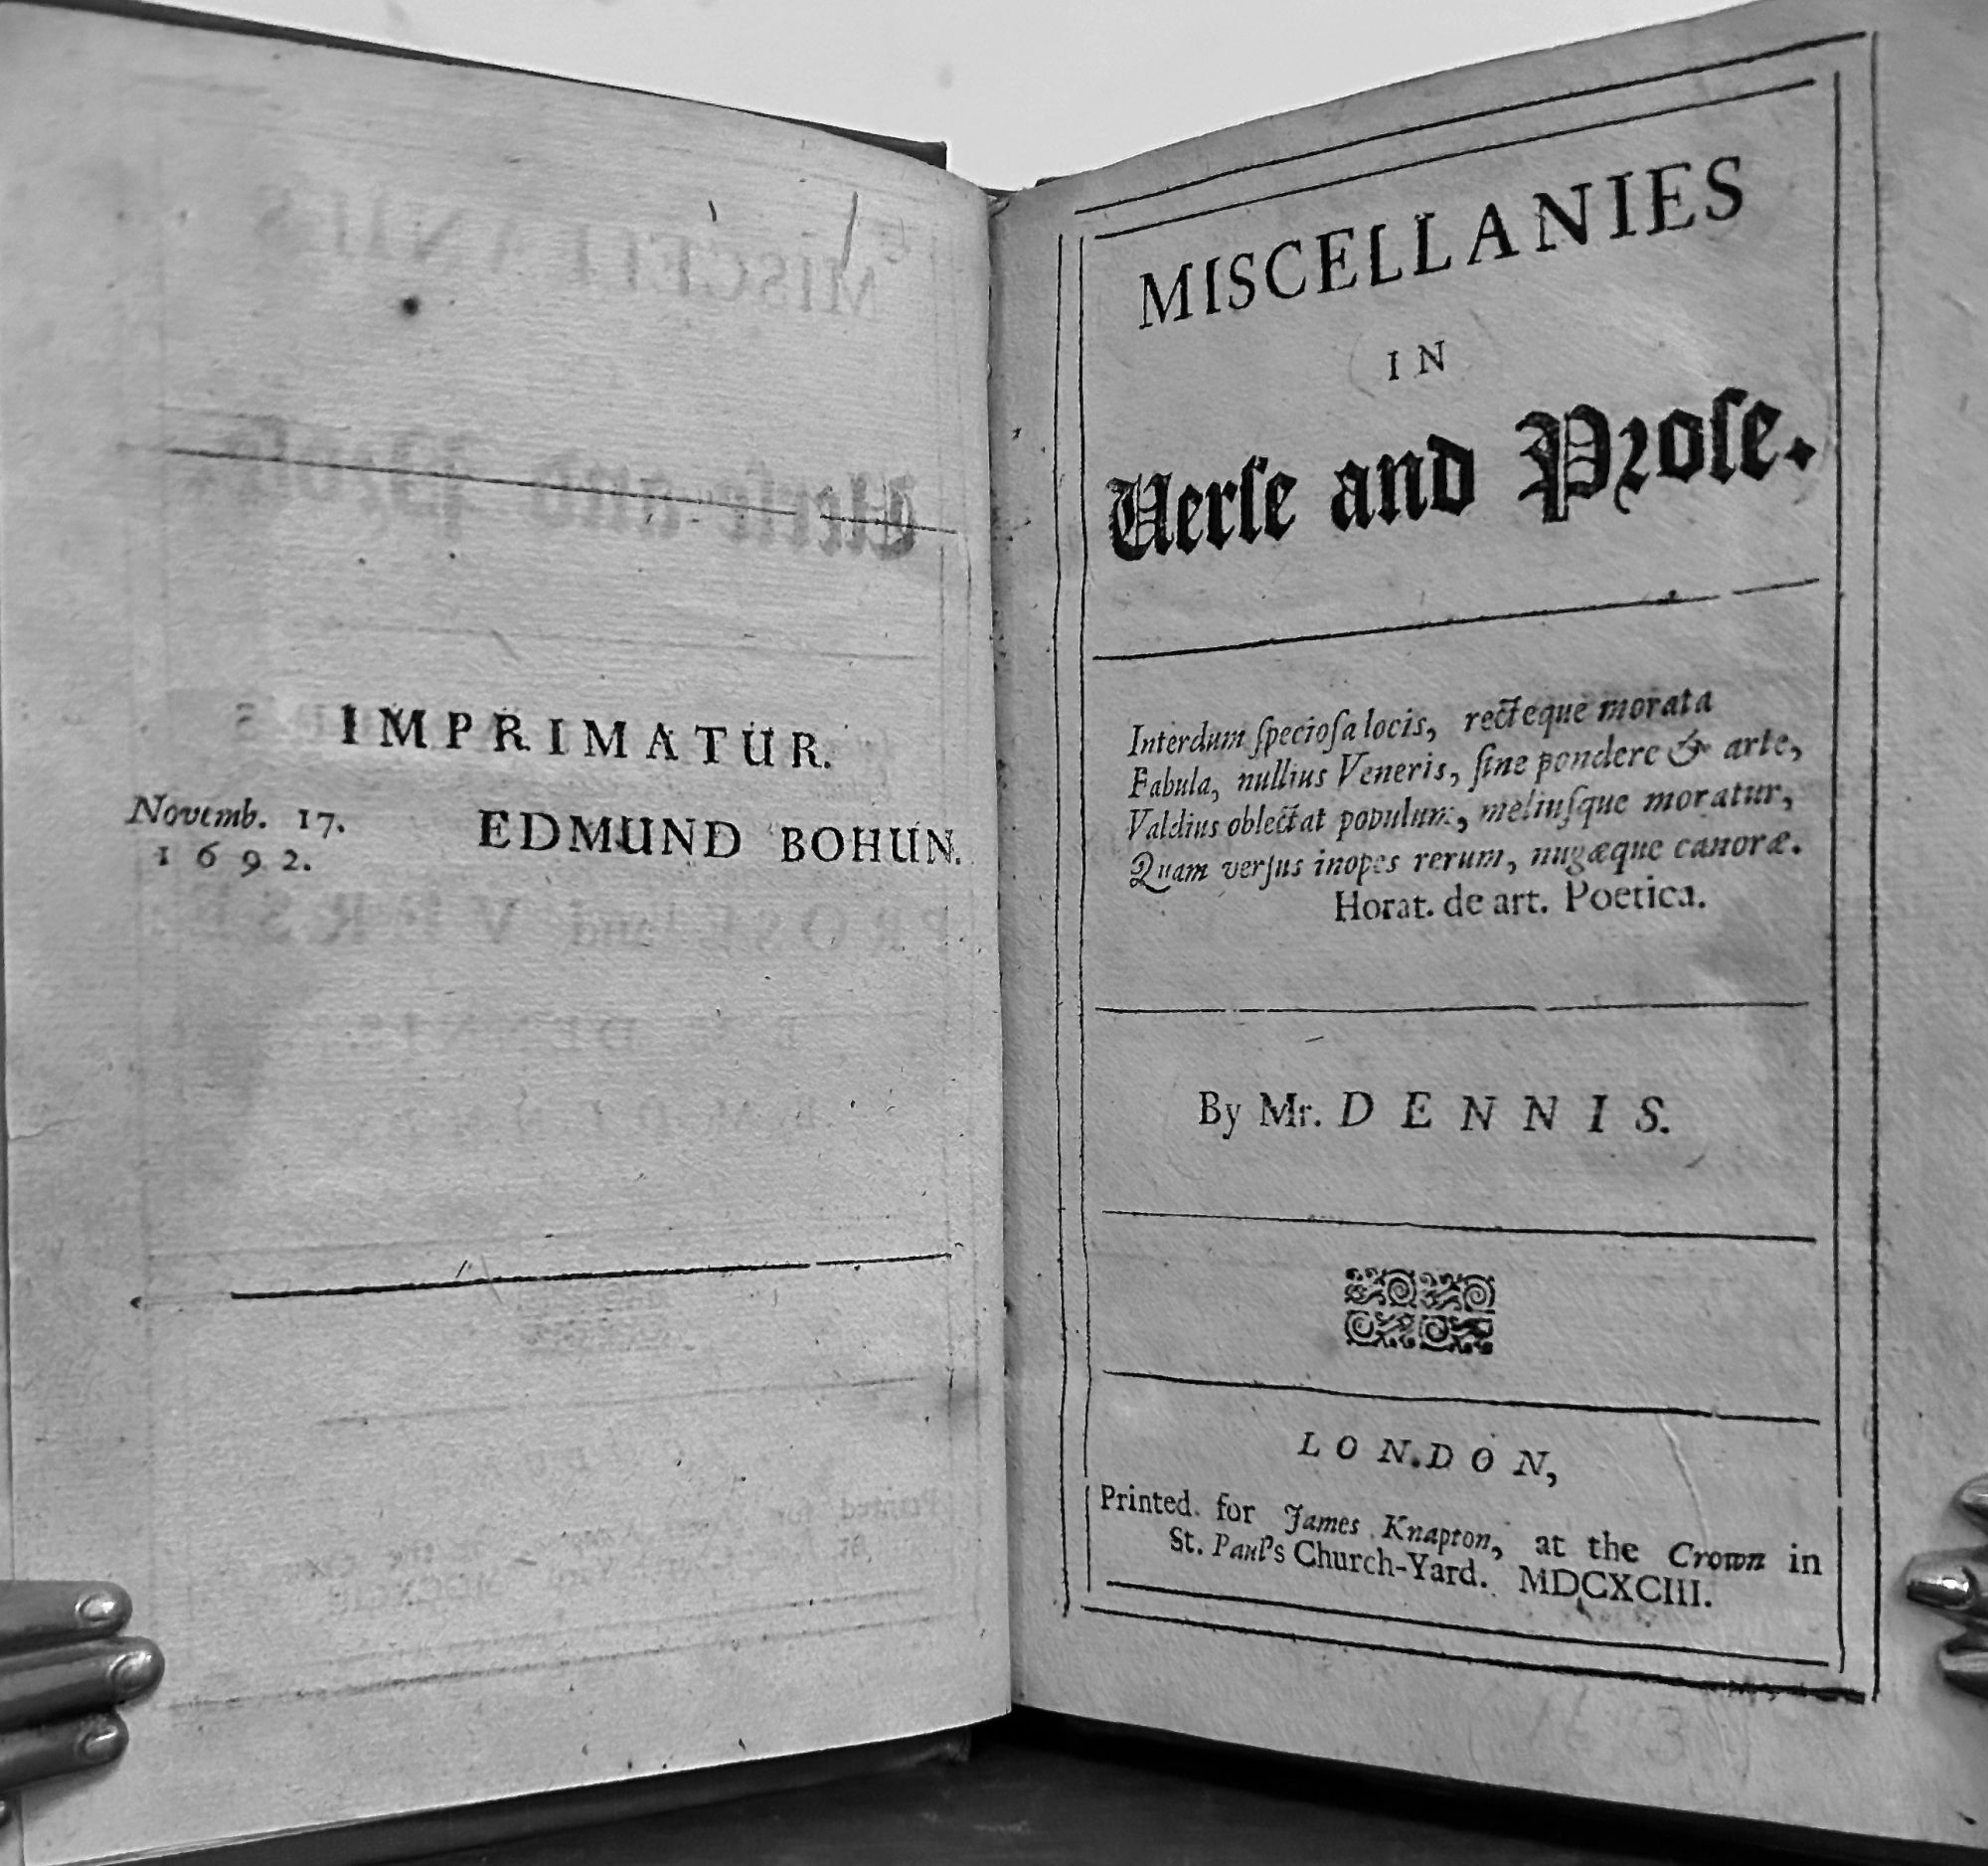 IMPRIMATUR.
Novemb. 17.
1692.
EDMUND BOHUN.
MISCELLANIES
IN
Verſe and Proſe.
Interdum ſpecioſa locis, recteque morata
Fabula, nullius Veneris, ſine pondere & arte,
Valdius oblectat populum, meliuſque moratur,
Quam verſus inopes rerum, nugæque canoræ.
Horat. de art. Poetica.
By Mr. DENNIS.
LONDON,
Printed for James Knapton, at the Crown in
St. Paul's Church-Yard. MDCXCIII.